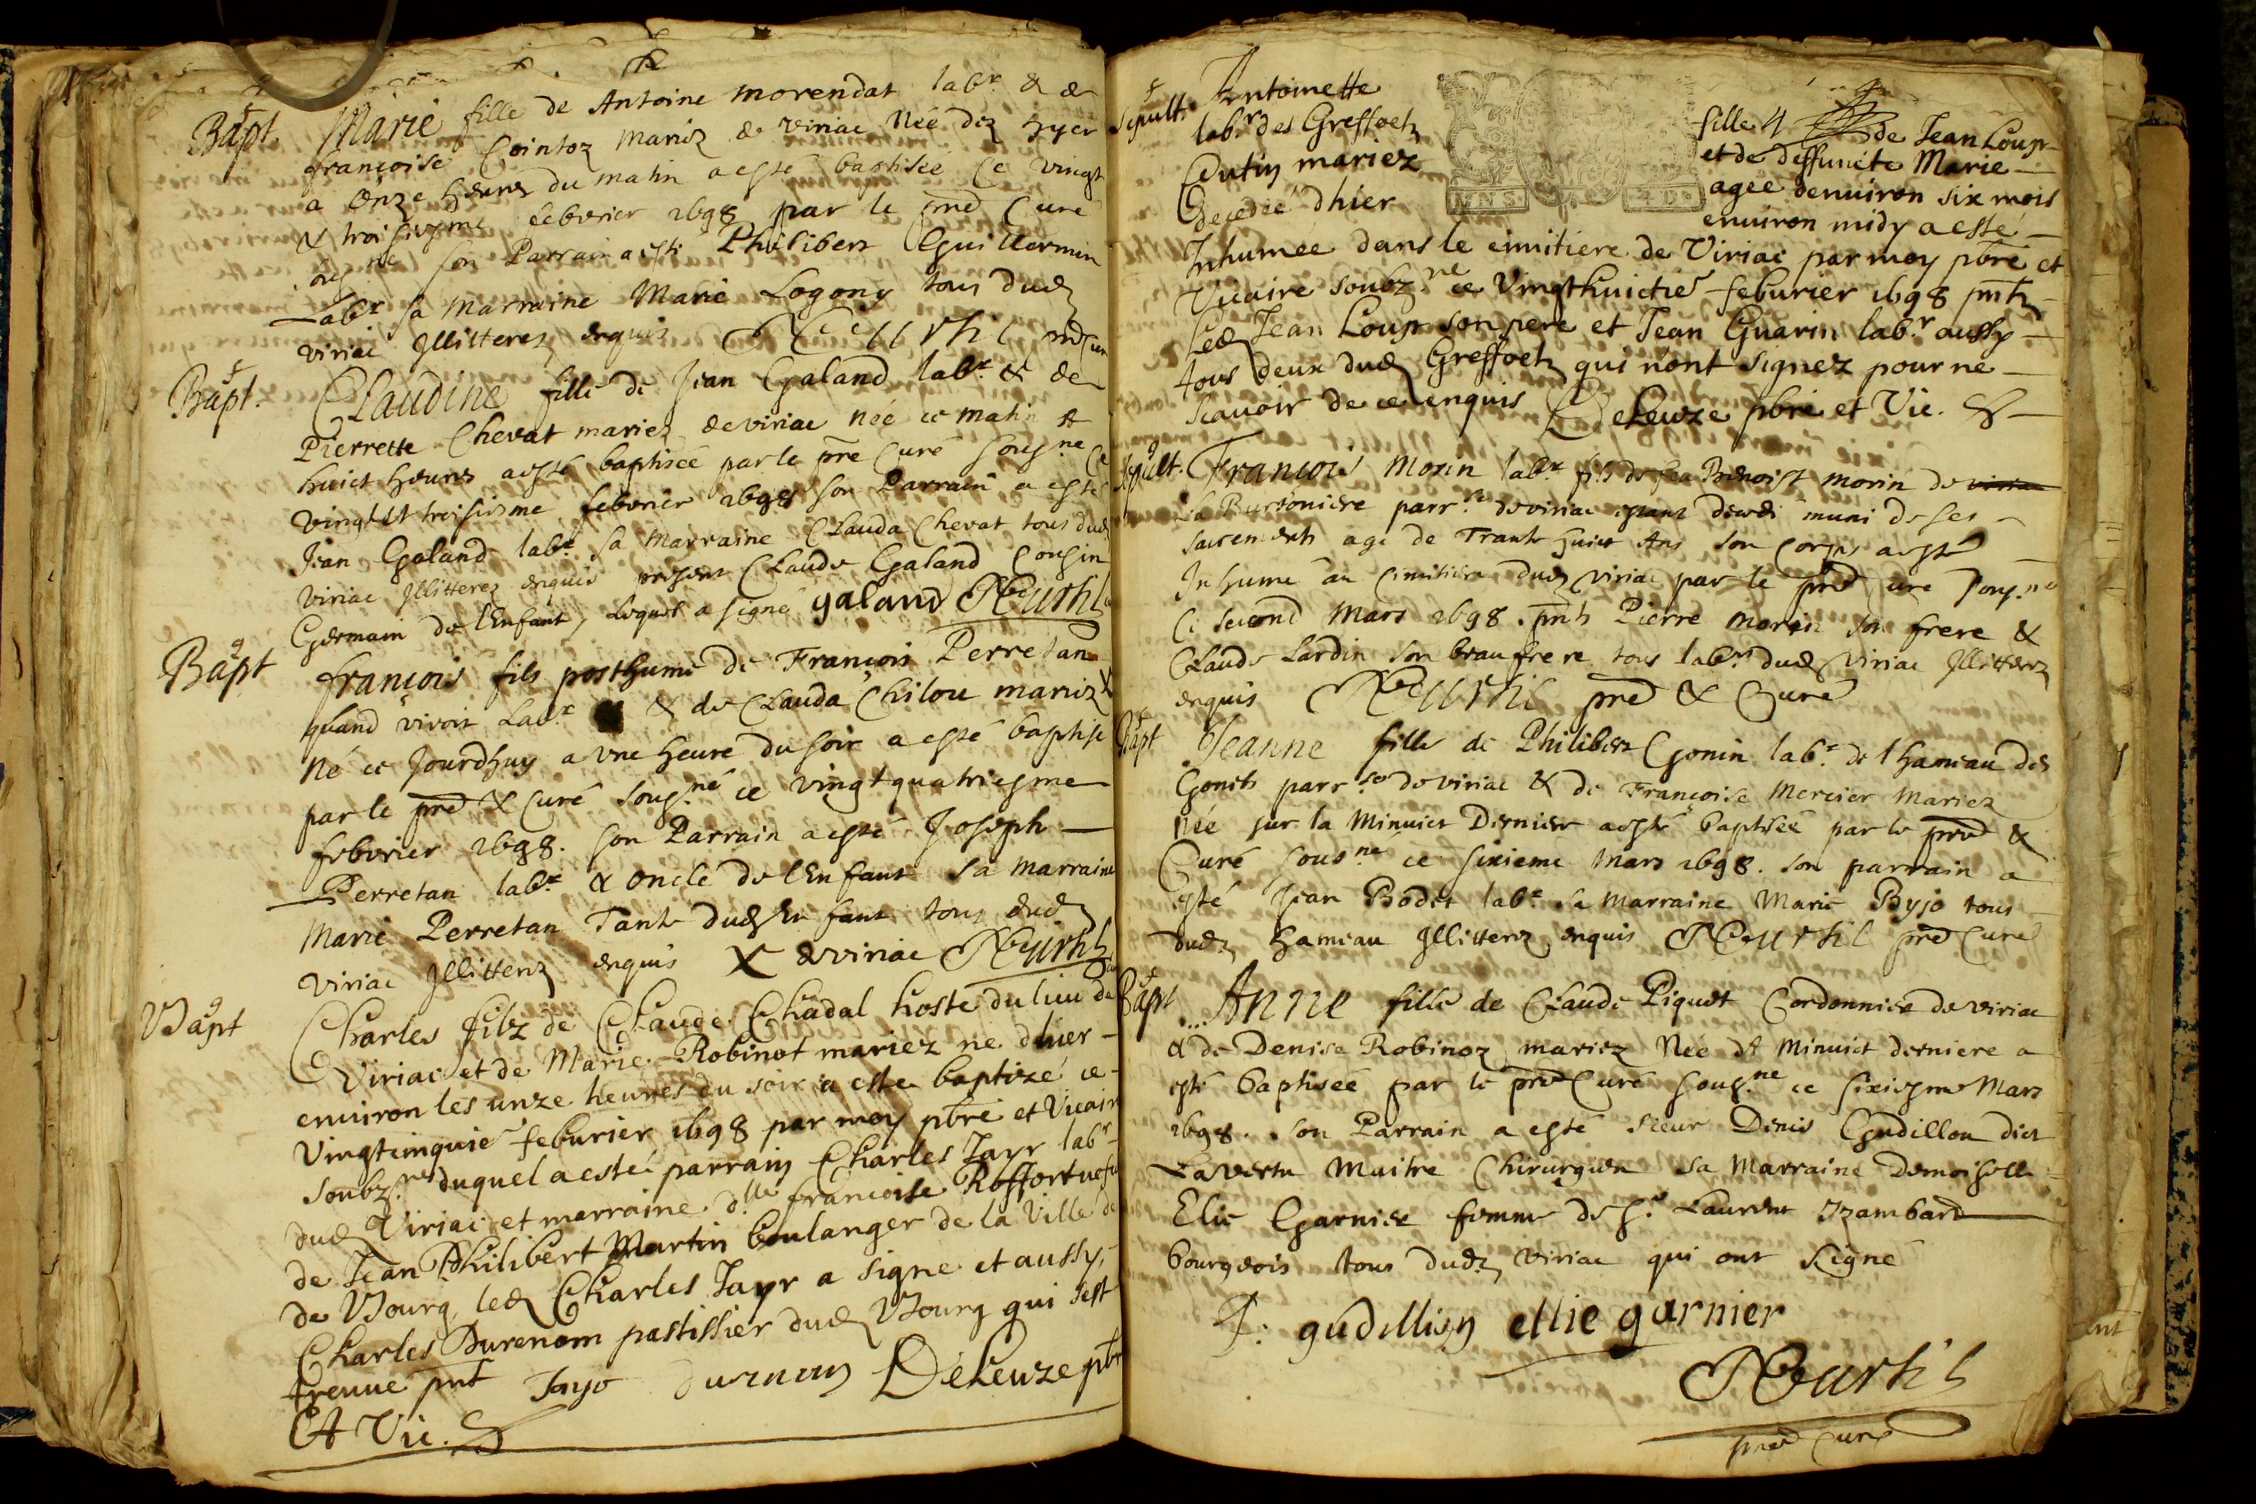 Bapt Marie fille de Antoine morendat labr. & de
francoise Cointoz mariez de viriac Née dez hyer
a onze heures du matin a esté baptisée ce vingt
& troisiesme febvrier 1698 par le Curé
son Parrain a esté Philibert Guillermin
Labr sa marraine Marie Logony tous dud
viriac Illitterez enquis
Bapt. Claudine fille de Jean Galand labr & de
Pierrette Chevat mariez de viriac née ce matin a
huict heures a esté baptisée par le pre Curé sousne Ce
vingt et troisiesme febvrier 1698 son Parrain a esté
Jean Galand labr sa Marraine Clauda Chevat tous dud
viriac Illitterez enquis present Claude Galand Cousin
Germain de l'Enfant, Lequel a signé galand
Bapt francois fils posthume de Francois Perretan
quand vivoit Labr & de Clauda Chilou mariez
Né ce Jourdhuy a une heure du soir a esté baptisé
par le pre & Curé sousné ce vingtquatriesme
febvrier 1698. son Parrain a esté Joseph
Perretan labr & oncle de lEnfant sa marraine
Marie Perretan Tante dud Enfant tous dud
viriac Illitterez enquis X de viriac
Bapt Charles filz de Claude Chadal hoste du lieu de
Viriac et de Marie Robinot mariez ne dhier
environ les unze heures du soir a este baptizé ce
Vingtcinquie feburier 1698 par moy pbre et Vicaire
soubz.né duquel a esté parrain Charles Jayr labr
dud Viriac et marraine d.lle francoise
de Jean Philibert Martin boulanger de la Ville de
de Bourg, led Charles Jayr a signe et aussy
Charles Durenom pastissier dud Bourg qui sest
treuve pnt Jayr durenom DeLeuze pbr
Et Vic.
Sepult. Antoinette fille de Jean Loup
labr. des Greffoetz et de deffuncte Marie
Cutin mariez agee denviron six mois
decedeé dhier environ midy a esté
Inhumée dans le cimitiere de Viriac par moy pbre et
Vicaire soubz.né ce Vingthuictie feburier 1698 pnts
Led Jean Loup son pere et Jean Guarin labr aussy
tous deux dud Greffoetz qui n'ont signez pour ne
scavoir de ce enquis DeLeuze pbre et Vic.
Sepult. Francois Morin labr fils de feu Benoist morin de
la Burboniere parr.e de viriac estant decedé muni de ses
sacrements agé de Trante huict Ans son corps a esté
Inhumé au Cimitiere dud viriac par le pre Curé sous.né
Ce second Mars 1698. pnts Pierre Morin son frere &
Claude Lardin son beaufrere tous labrs dud viriac Illitterez
enquis pre & Curé
Bapt Jeanne fille de Philibert Gonin labr. de lhameau des
Gonits parr.se de viriac & de Françoise Mercier Mariez
Née sur la Minuict Derniere a esté baptisée par le pre &
Curé sous.né ce sixieme Mars 1698. son parrain a
esté Jean Bodet labr sa marraine Marie Byjo tous
dud hameau Illitterez enquis pre Curé
Bapt Anne fille de Claude Piquet Cordonnier de viriac
& de Denise Robinoz mariez Née dt Minuict derniere a
esté baptisée par le pre Curé sous.né ce sixiesme Mars
1698. son Parrain a esté sieur Denis Gudillon dict
Lavertu Maitre Chirurgien sa Marraine Demoiselle
Elie Garnier femme de sr. Laurent Izambard
bourgeois tous dud viriac qui ont signé
gudillion ellie garnier
pre Curé